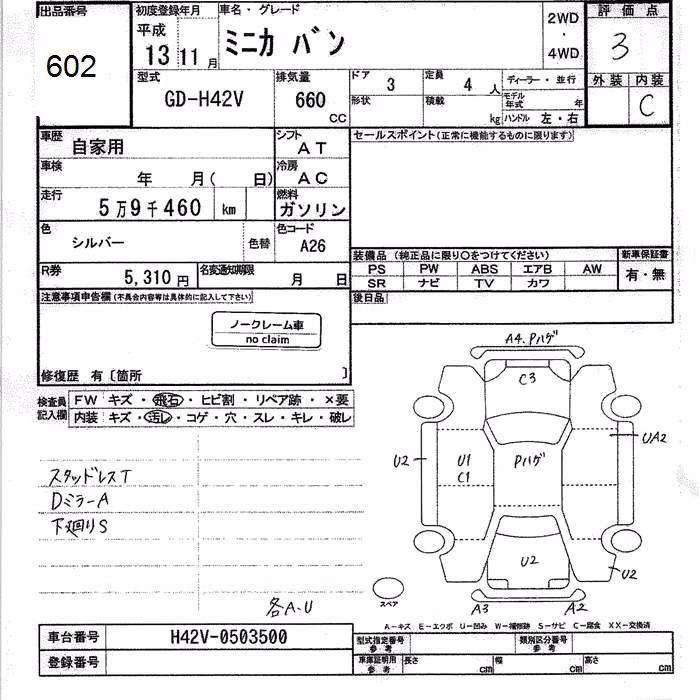 出品番号
602
初度登録年月
平成
13 11 月
車名・グレード
ミニカ バン
2WD
・
4WD
評価点
3
外装 内装
C
型式
GD-H42V
排気量
660
CC
ドア 3
定員 4 人
ディーラー・並行
形状
積載 kg
モデル年式 年
ハンドル 左・右
車歴 自家用
シフト AT
セールスポイント(正常に機能するものに限ります)
車検 年 月( 日)
冷房 AC
走行 5万9千460 km
燃料 ガソリン
色 シルバー 色替
色コード A26
装備品 (純正品に限り○をつけてください)
新車保証書
PS PW ABS エアB AW
SR ナビ TV カワ
有・無
R券 5,310 円
名変通知期限 月 日
後日品
注意事項申告欄(不具合内容等は具体的に記入して下さい)
ノークレーム車
no claim
修復歴 有〔箇所 〕
検査員記入欄
FW キズ・飛石・ヒビ割・リペア跡・×要
内装 キズ・汚レ・コゲ・穴・スレ・キレ・破レ
スタッドレスT
DミラーA
下廻りS
各A.U
A4.Pハゲ
C3
U2
U1
C1
Pハゲ
UA2
U2
U2
A3
A2
スペア
A-キズ E-エクボ U-凹み W-補修跡 S-サビ C-腐食 XX-交換済
車台番号 H42V-0503500
登録番号
型式指定番号 参考
類別区分番号 参考
車庫証明用 参考
長さ cm
幅 cm
高さ cm